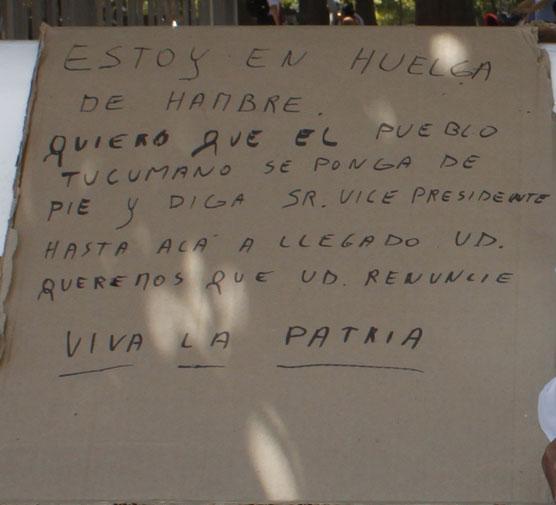 ESTOY EN HUELGA
DE HAMBRE.
QUIERO QUE EL PUEBLO
TUCUMANO SE PONGA DE
PIE Y DIGA SR. VICE PRESIDENTE
HASTA ACÁ A LLEGADO UD.
QUEREMOS QUE UD. RENUNCIE
VIVA LA PATRIA